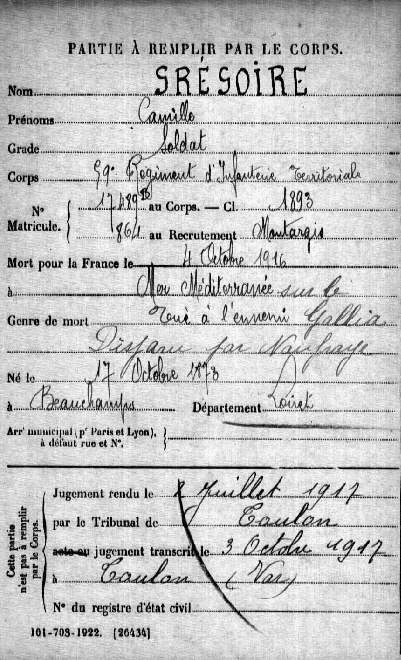 PARTIE À REMPLIR PAR LE CORPS.
Nom GRÉGOIRE
Prénoms Camille
Grade Soldat
Corps 59e Régiment d'Infanterie Territoriale
N° Matricule. { 17489 bis au Corps. — Cl. 1893
861 au Recrutement Montargis
Mort pour la France le 4 Octobre 1916
à Mer Méditerranée sur le
Genre de mort Tué à l'ennemi Gallia
Disparu par Naufrage
Né le 17 Octobre 1873
à Beauchamps Département Loiret
Arrt municipal (pr Paris et Lyon), à défaut rue et N°. {
Cette partie n'est pas à remplir par le Corps.
Jugement rendu le 2 Juillet 1917
par le Tribunal de Toulon
acte ou jugement transcrit le 3 Octobre 1917
à Toulon (Var)
N° du registre d'état civil
101-708-1922. [26434]